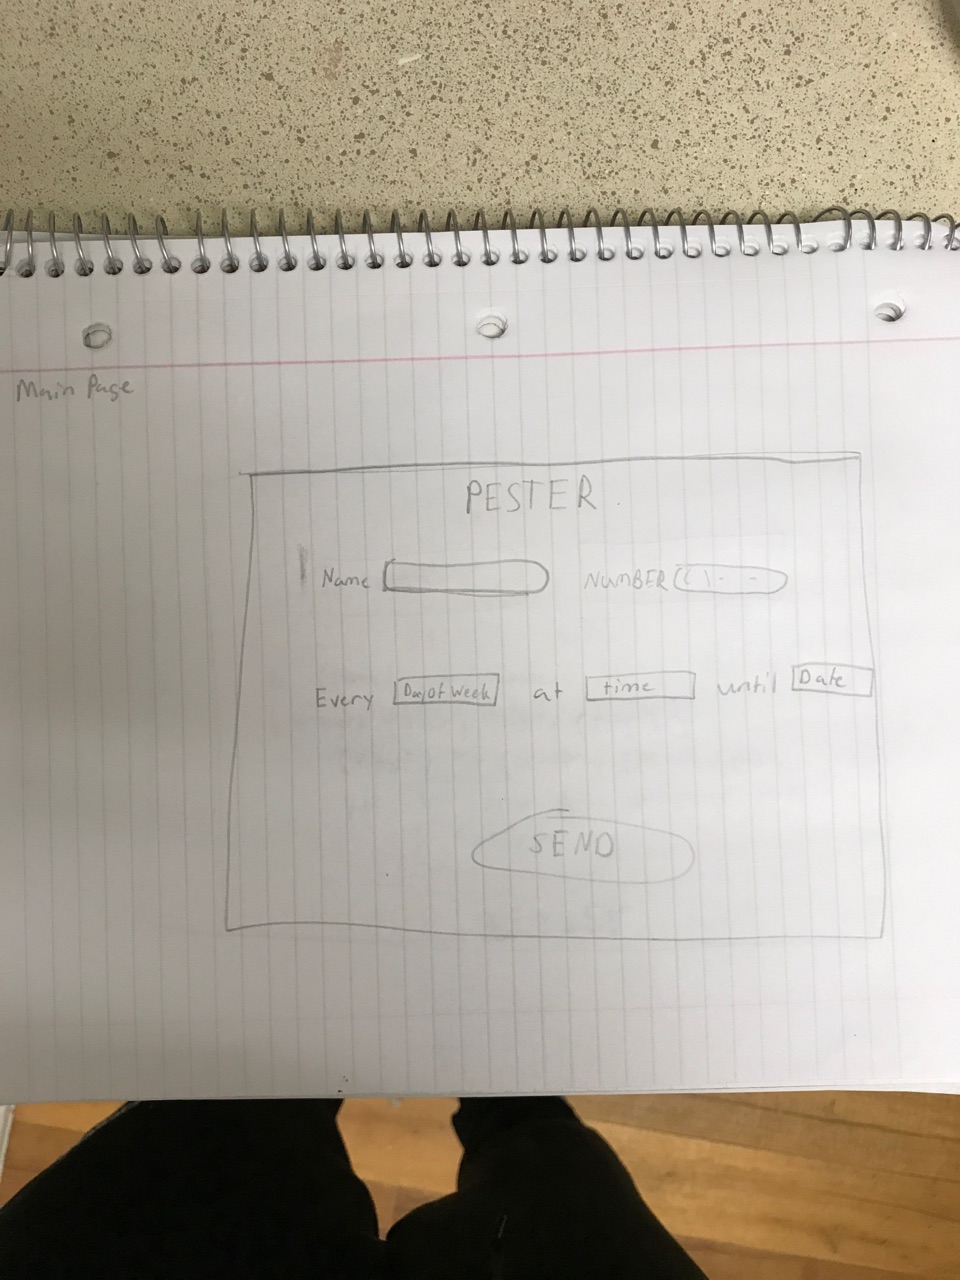 Main Page
PESTER
Name NUMBER ( ) - -
Every Day of Week at time until Date
SEND